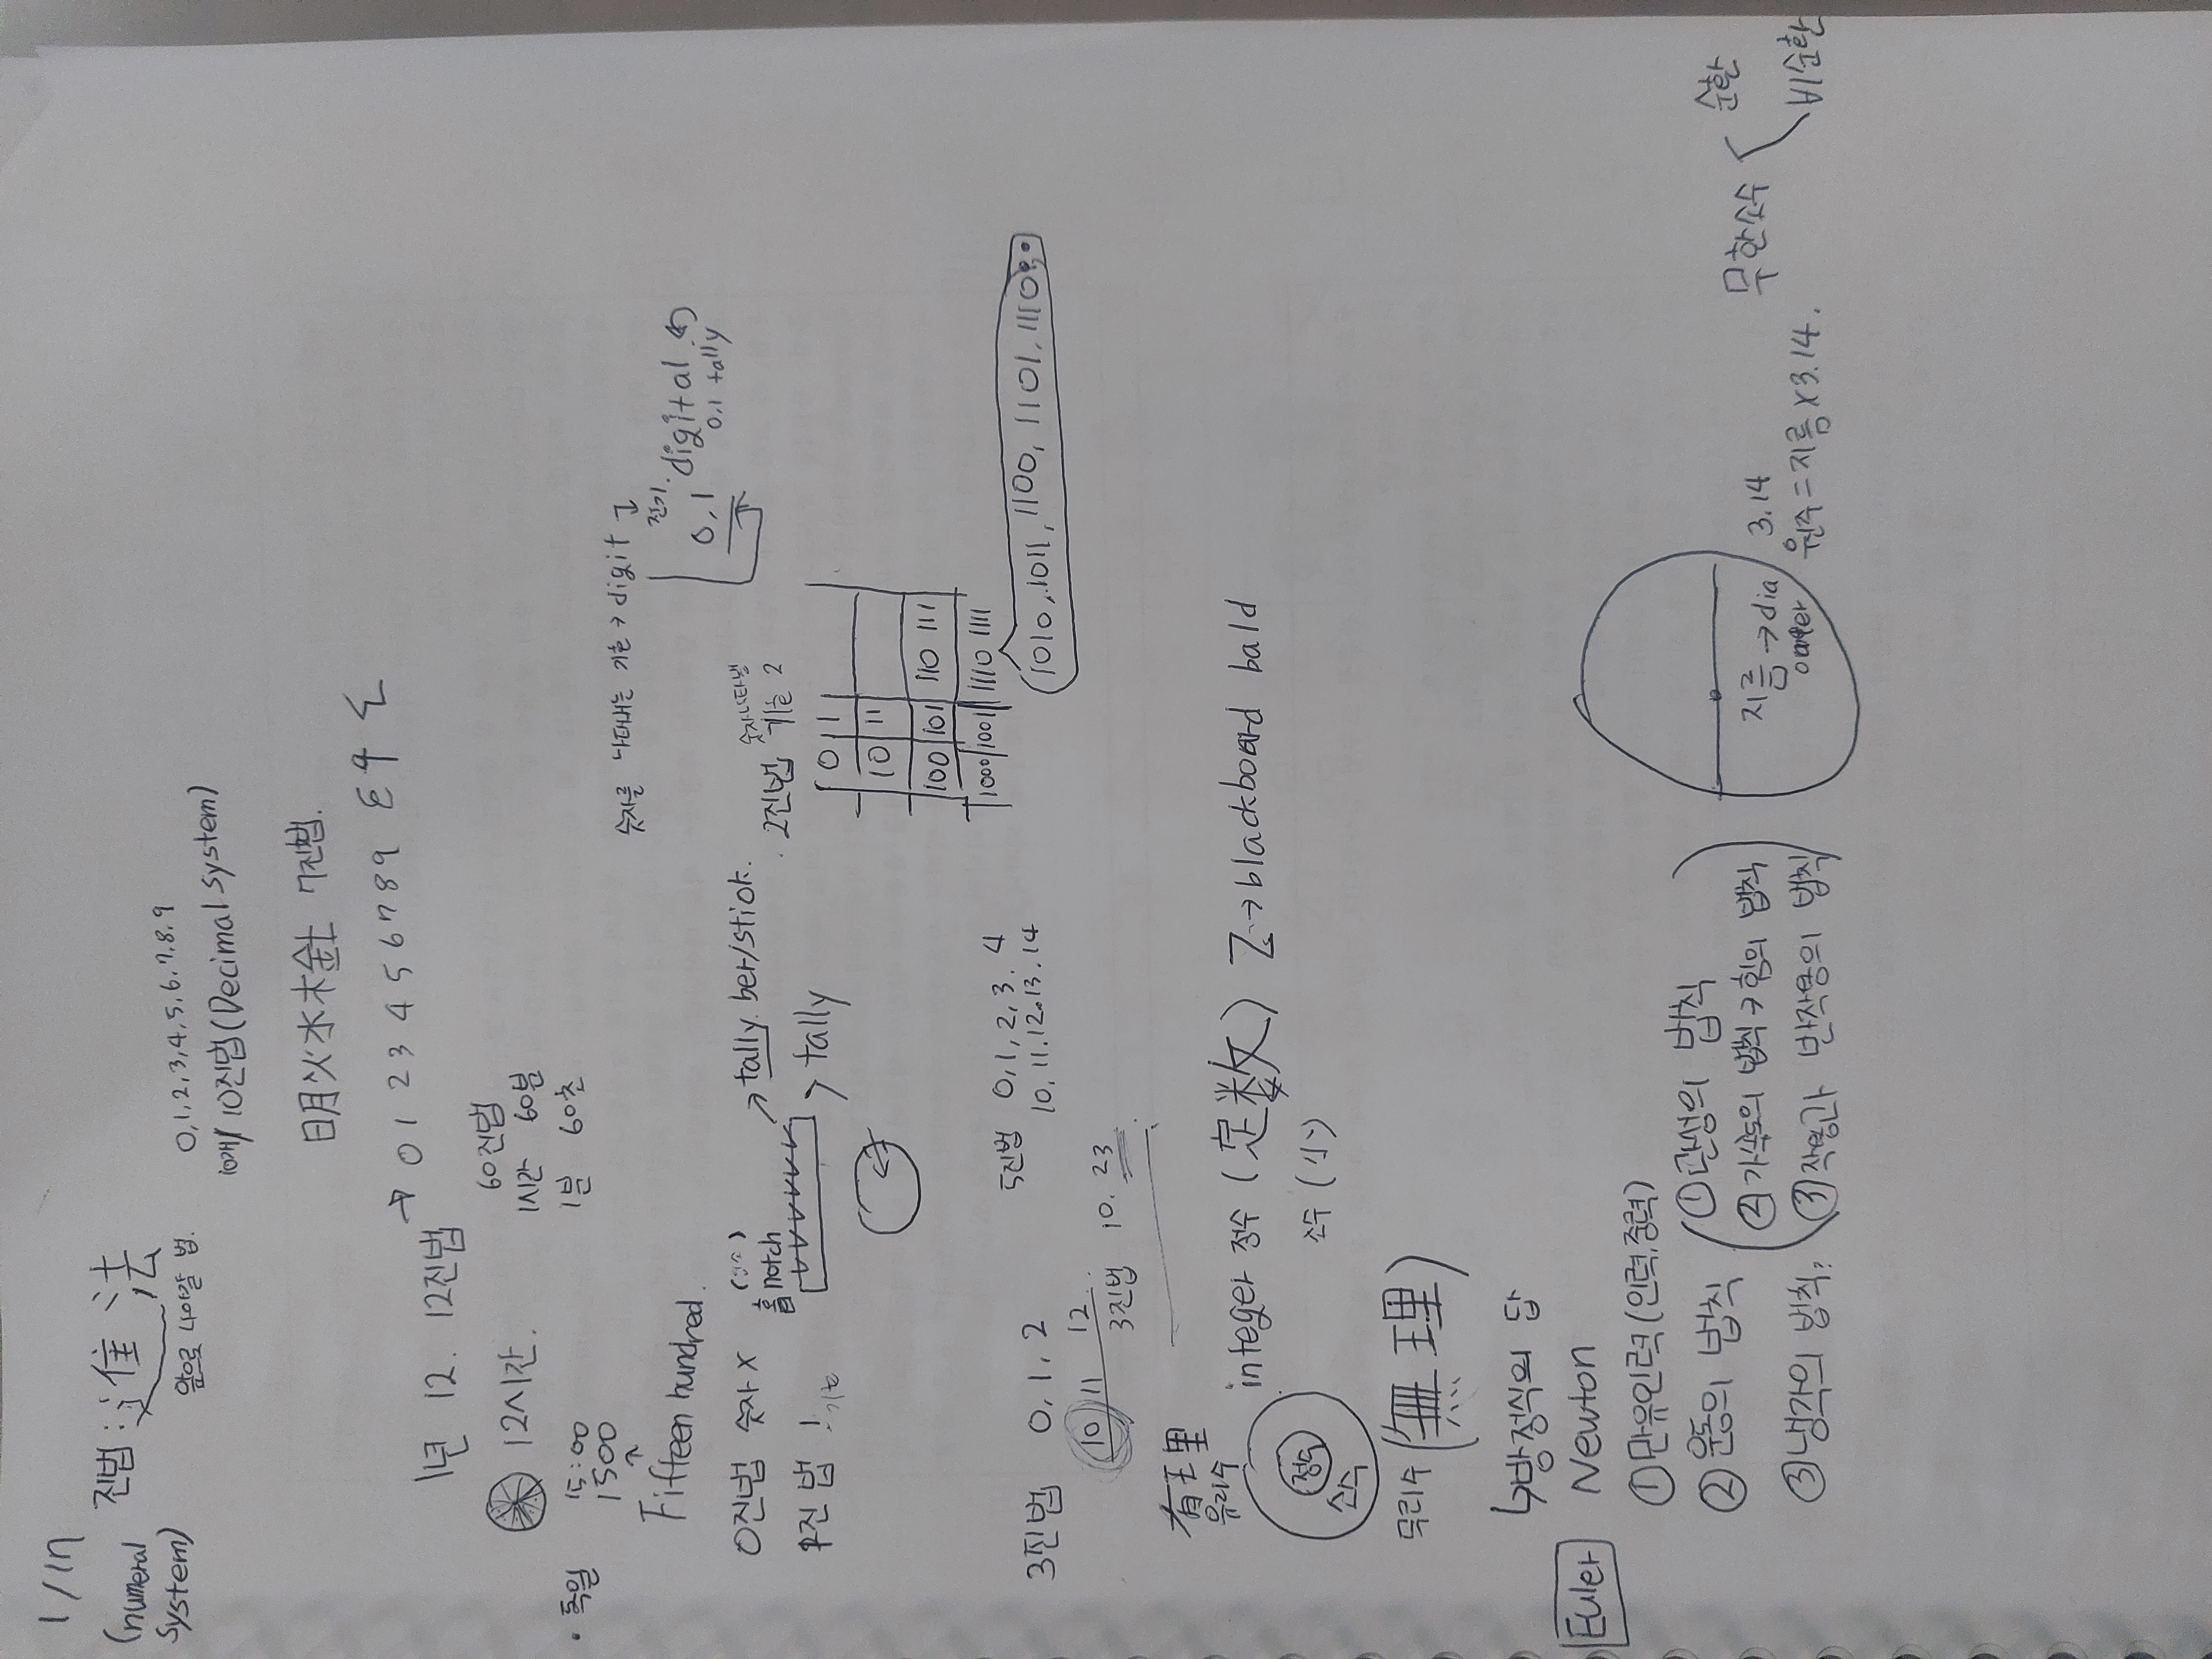 1/17
진법 : 進法
(numeral
system)
앞으로 나아갈 법.
0,1,2,3,4,5,6,7,8,9
10개/ 10진법(Decimal system)
日月火水木金土 7진법.
1년 12. 12진법 → 0 1 2 3 4 5 6 7 8 9
12시간.
60진법
1시간 60분
1분 60초
· 독일 15:00
1500
Fifteen hundred.
숫자를 나타내는 기호 → digit
전기.
0,1 digital
0,1 tally
0진법 숫자 X
1진법 !
홈 notch
→ tally. bar/stick.
> tally
2진법 숫자나타낼
기호 2
0 1
10 11
100 101 110 111
1000 1001 1110 1111
1010, 1011, 1100, 1101, 1110
3진법 0, 1, 2
10 11 12
3진법 10. 23
5진법 0, 1, 2, 3. 4
10. 11. 12. 13. 14
有理
유리수
정수
소수
integer 정수 (定数) Z → blackboard bald
소수 (小)
무리수 (無理)
↳방정식의 답
Euler
Newton
① 만유인력 (인력,중력)
② 운동의 법칙
① 관성의 법칙
② 가속도의 법칙 → 힘의 법칙
③ 작용과 반작용의 법칙
③ 냉각의 법칙?
지름 → dia
3.14
원주 = 지름 x 3.14.
무한소수
순환
비순환